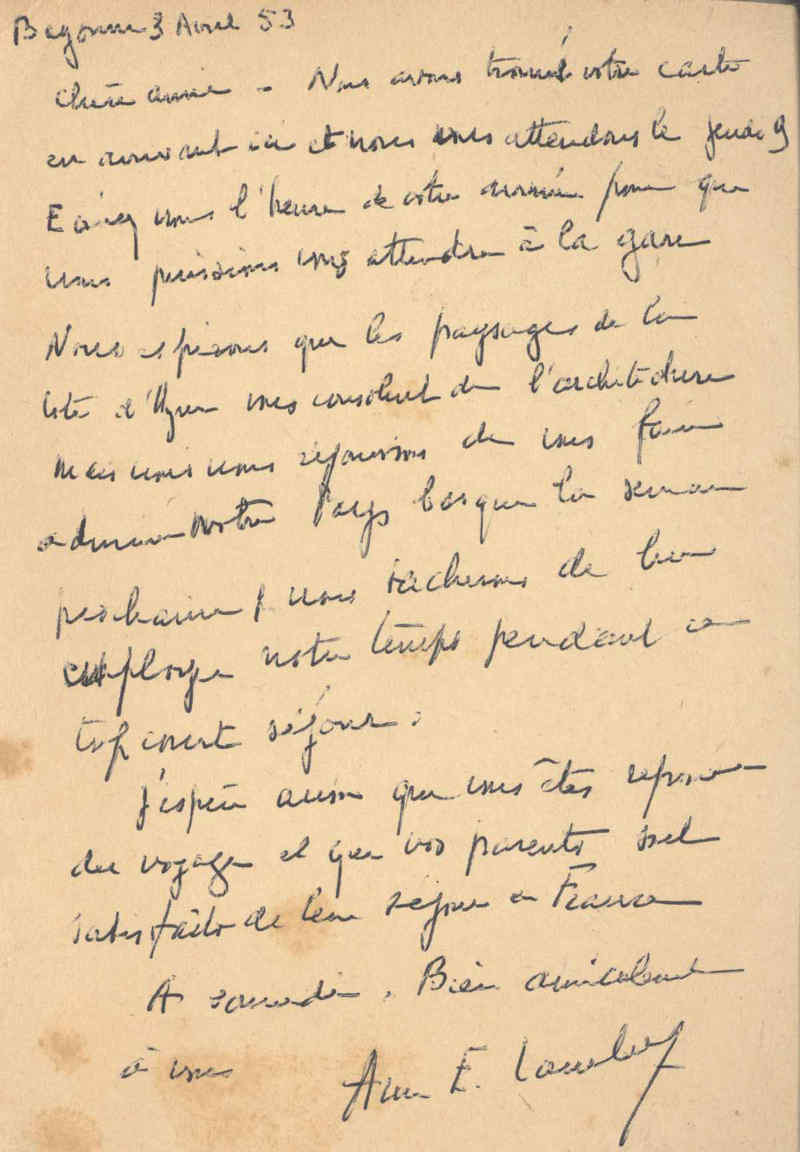 Bayonne 3 Avril 53
chère amie - Nous avons trouvé votre carte
en arrivant ici et nous vous attendons le jeudi 9
Ecrivez nous l'heure de votre arrivée pour que
nous puissions vous attendre à la gare
Nous espérons que les paysages de la
côte d'Azur vous consolent de l'architecture
mais nous nous réjouissons de vous faire
admirer notre Pays basque la semaine
prochaine, nous tacherons de bien
employer notre temps pendant ce
trop court séjour.
J'espère aussi que vous êtes reposée
du voyage et que vos parents sont
satisfaits de leur séjour en France
A samedi. Bien amicalement
à vous
E.